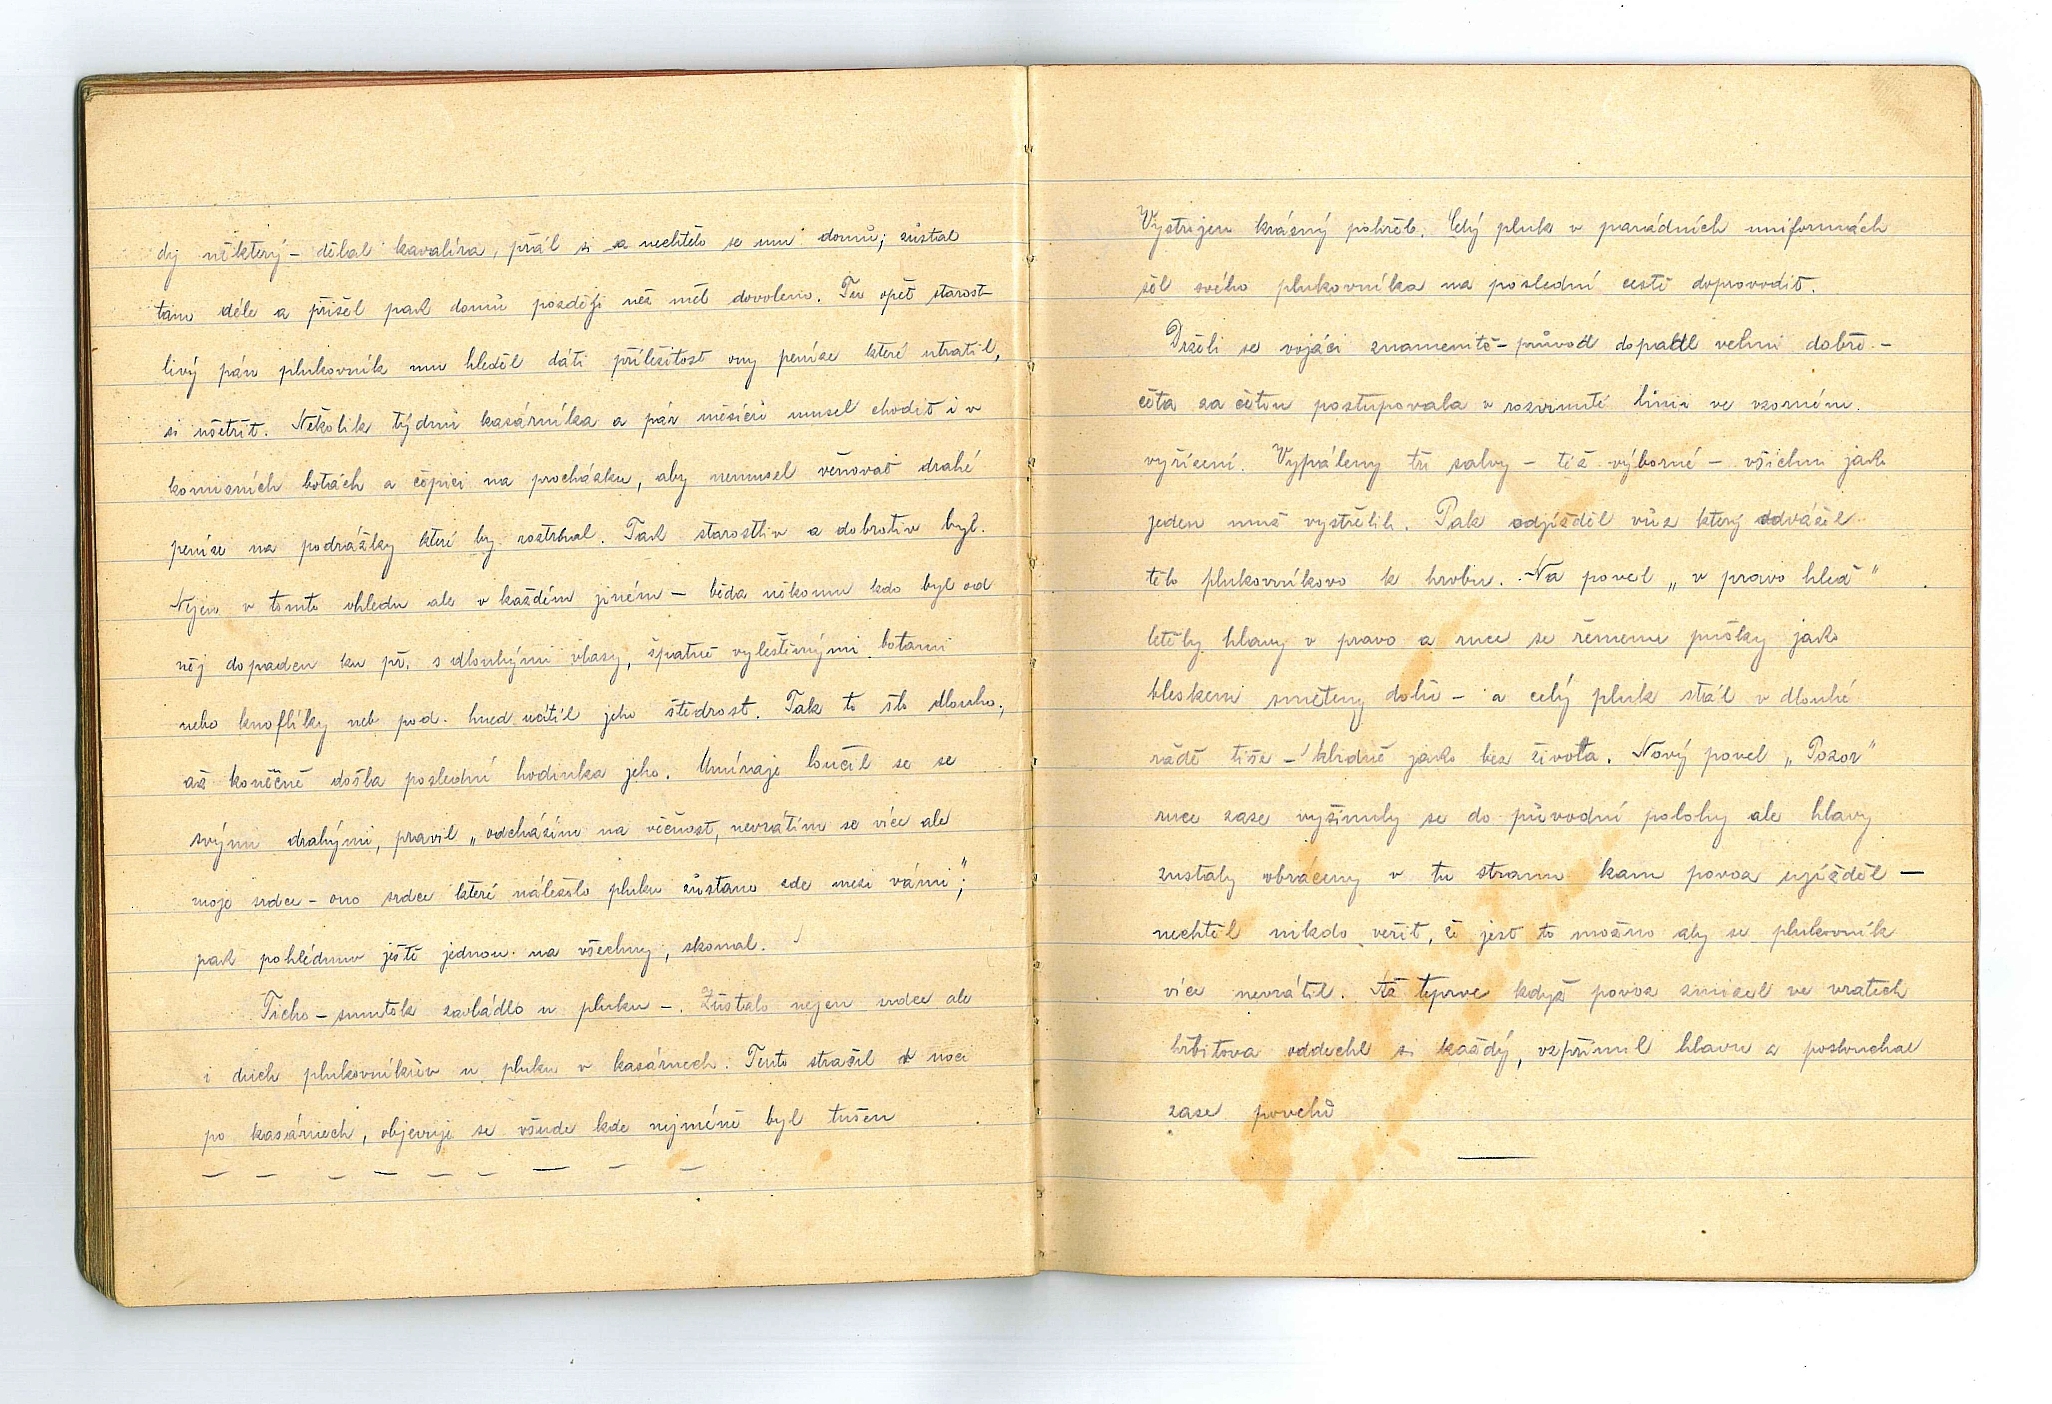 dy některý – dělal kavalíra, přál si a nechtělo se mu domů; zůstal
tam déle a přišel pak domů později než měl dovoleno. Tu opět starost-
livý pán plukovník mu hleděl dáti příležitost ony peníze které utratil,
si ušetřit. Několik týdnů kasárníka a pár měsíců musel chodit i v
komisních botách a čepici na procházku, aby nemusel věnovat drahé
peníze na podrážky které by roztrhal. Tak starostliv a dobrotiv byl.
Nejen v tomto ohledu ale v každém jiném – běda někomu kdo byl od
něj dopaden ku př. s dlouhými vlasy, špatně vyleštěnými botami
nebo knoflíky neb pod. hned ucítil jeho štědrost. Tak to šlo dlouho,
až konečně došla poslední hodinka jeho. Umíraje loučil se se
svými drahými, pravil „odcházím na věčnost, nevrátím se více ale
moje srdce – ono srdce které náleželo pluku zůstane zde mezi vámi";
pak pohlédnuv ještě jednou na všechny, skonal.
Ticho – smutek zavládlo u pluku –. Zůstalo nejen srdce ale
i duch plukovníkův u pluku v kasárnech. Tento strašil v noci
po kasárnech, objevuje se všude kde nejméně byl tušen
— — — — — — — — —
Vystrojen krásný pohřeb. Celý pluk v parádních uniformách
šel svého plukovníka na poslední cestě doprovodit.
Drželi se vojáci znamenitě – průvod dopadl velmi dobře. –
četa za četou postupovala v rozvinuté linii ve vzorném
vyřízení. Vypáleny tři salvy – též výborné – všichni jak
jeden muž vystřelili. Pak odjížděl vůz který odvážel
tělo plukovníkovo k hrobu. Na povel „v pravo hleď"
letěly hlavy v pravo a ruce se řemenu pušky jako
bleskem smeteny dolů – a celý pluk stál v dlouhé
řadě tiše – klidně jako bez života. Nový povel „Pozor"
ruce zase vyšinuly se do původní polohy ale hlavy
zustaly obráceny v tu stranu kam povoz ujížděl –
nechtěl nikdo věřit, že jest to možno aby se plukovník
více nevrátil. Až teprve když povoz zmizel ve vratech
hřbitova oddechl si každý, vzpřímil hlavu a poslouchal
zase povelů